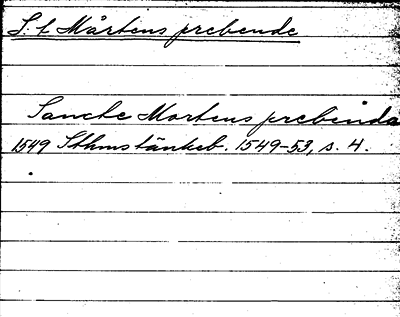 S:t Mårtens prebende
Sancte Mortens prebenda
1549 Sthms tänkeb. 1549-53, s. 4.